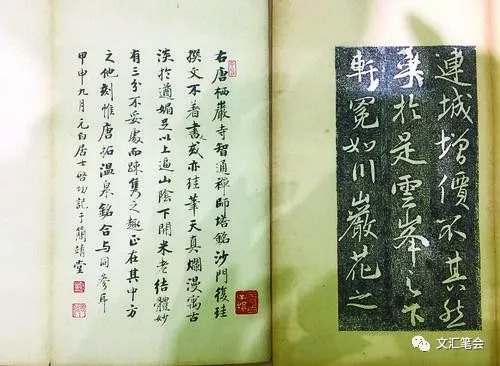 連城增價不其然
於是雲峯之下
軒冕如川巖花之
右唐栖巖寺智通禪師塔銘沙門復珪
撰文不著書或亦珪筆天真爛漫寓古
淡於遒媚足以上追山陰下開米老結體妙
有三分不妥處而踈雋之趣正在其中方
之他刻惟唐拓溫泉銘合与同參耳
甲申九月元白居士啓功記于簡靖堂
文汇笔会